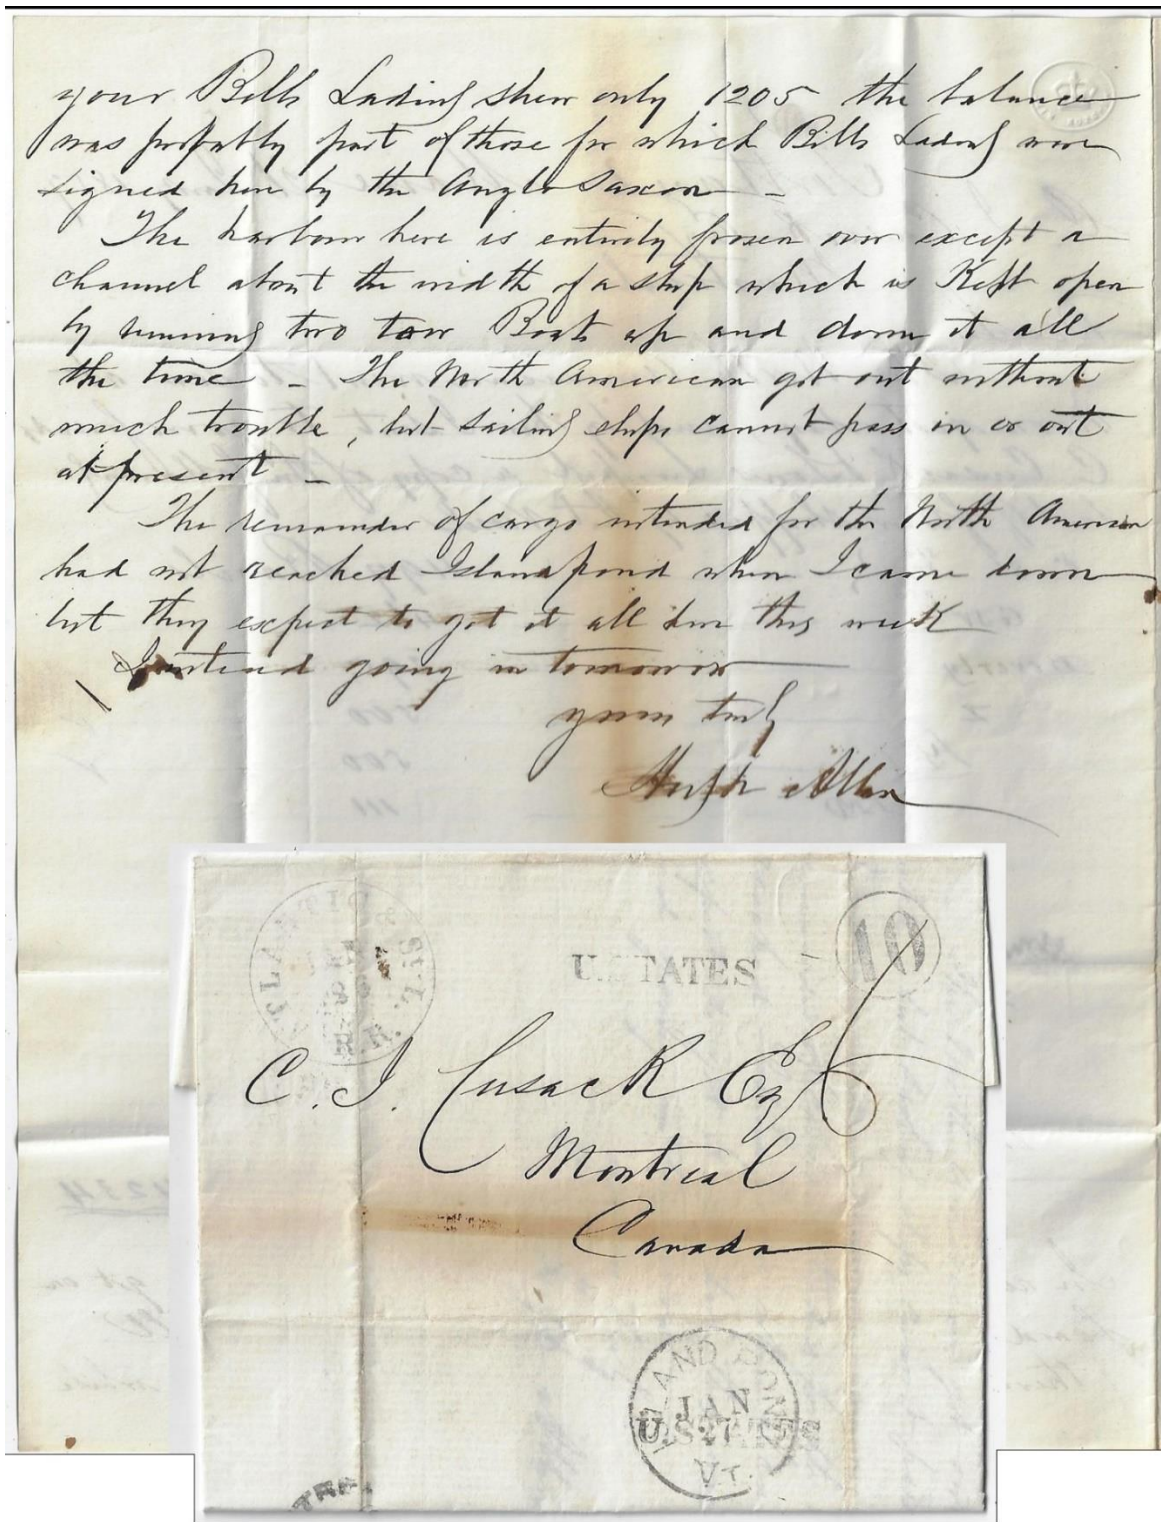 your Bills Lading shew only 1205 the balance
was probably part of those for which Bills Lading were
signed here by the Anglo Saxon -
The harbour here is entirely frozen over except a
channel about the width of a ship which is Kept open
by running two tow Boats up and down it all
the time - The North American got out without
much trouble, but sailing ships cannot pass in or out
at present -
The remainder of cargo intended for the North American
had not reached Island pond when I came down
but they expect to get it all here this week
I intend going in tomorrow
yours truly
Hugh Allan
500
111
4234
10
U.STATES
R.R.
C. J. Cusack Esq
6
Montreal
Canada
ISLAND POND
JAN
U.STATES
VT.